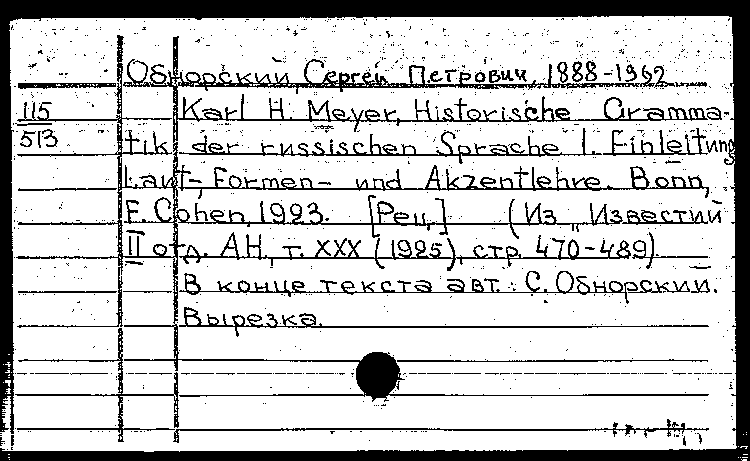 Обнорский, Сергей Петрович, 1888-1962
115 Karl H. Meyer, Historische Gramma-
513 tik der russischen Sprache I. Einleitung
Laut-, Formen- und Akzentlehre. Bonn,
F. Cohen, 1923. [Рец.] (Из „Известий
II отд. АН., т. XXX (1925), стр. 470-489)
В конце текста авт.: С. Обнорский.
Вырезка.